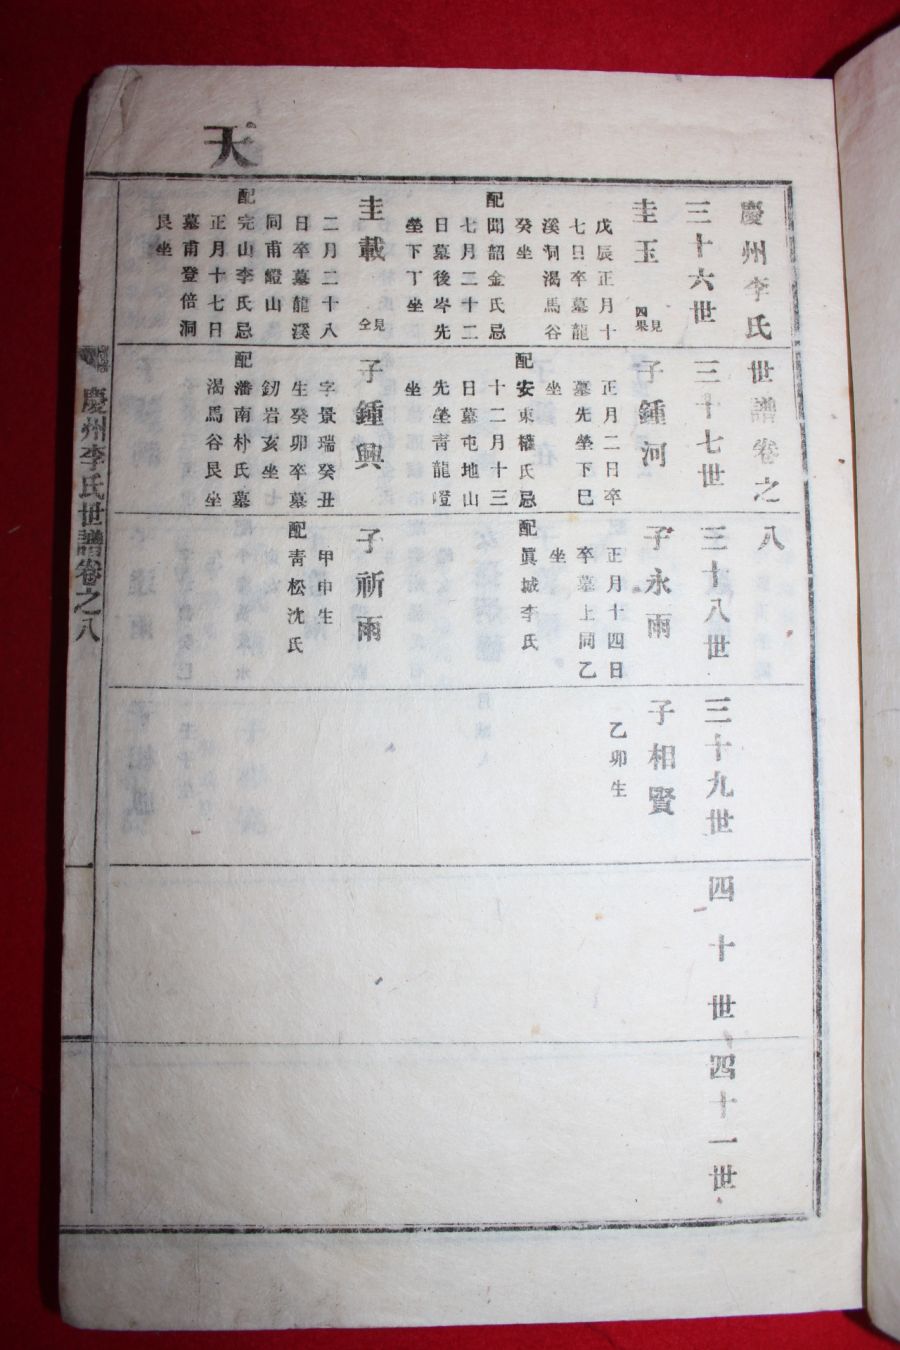 天
慶州李氏世譜卷之八
三十六世
圭玉
見四
戊辰正月十
七日卒墓龍
溪洞渴馬谷
癸坐
配聞韶金氏忌
七月二十二
日墓後岑先
塋下丁坐
圭載
見全
二月二十八
日卒墓龍溪
同甫鱧山
配完山李氏忌
正月十七日
墓甫登倍洞
艮坐
三十七世
子鍾河
正月二日卒
墓先塋下巳
坐
配安東權氏忌
十二月十三
日墓屯地山
先塋靑龍嶝
坐
子鍾興
字景瑞癸丑
生癸卯卒墓
釰岩亥坐
配潘南朴氏墓
渴馬谷艮坐
三十八世
子永雨
正月十四日
卒墓上同乙
坐
配眞城李氏
子祈雨
甲申生
配靑松沈氏
三十九世
子相賢
乙卯生
四十世
四十一世
慶州李氏世譜卷之八
一